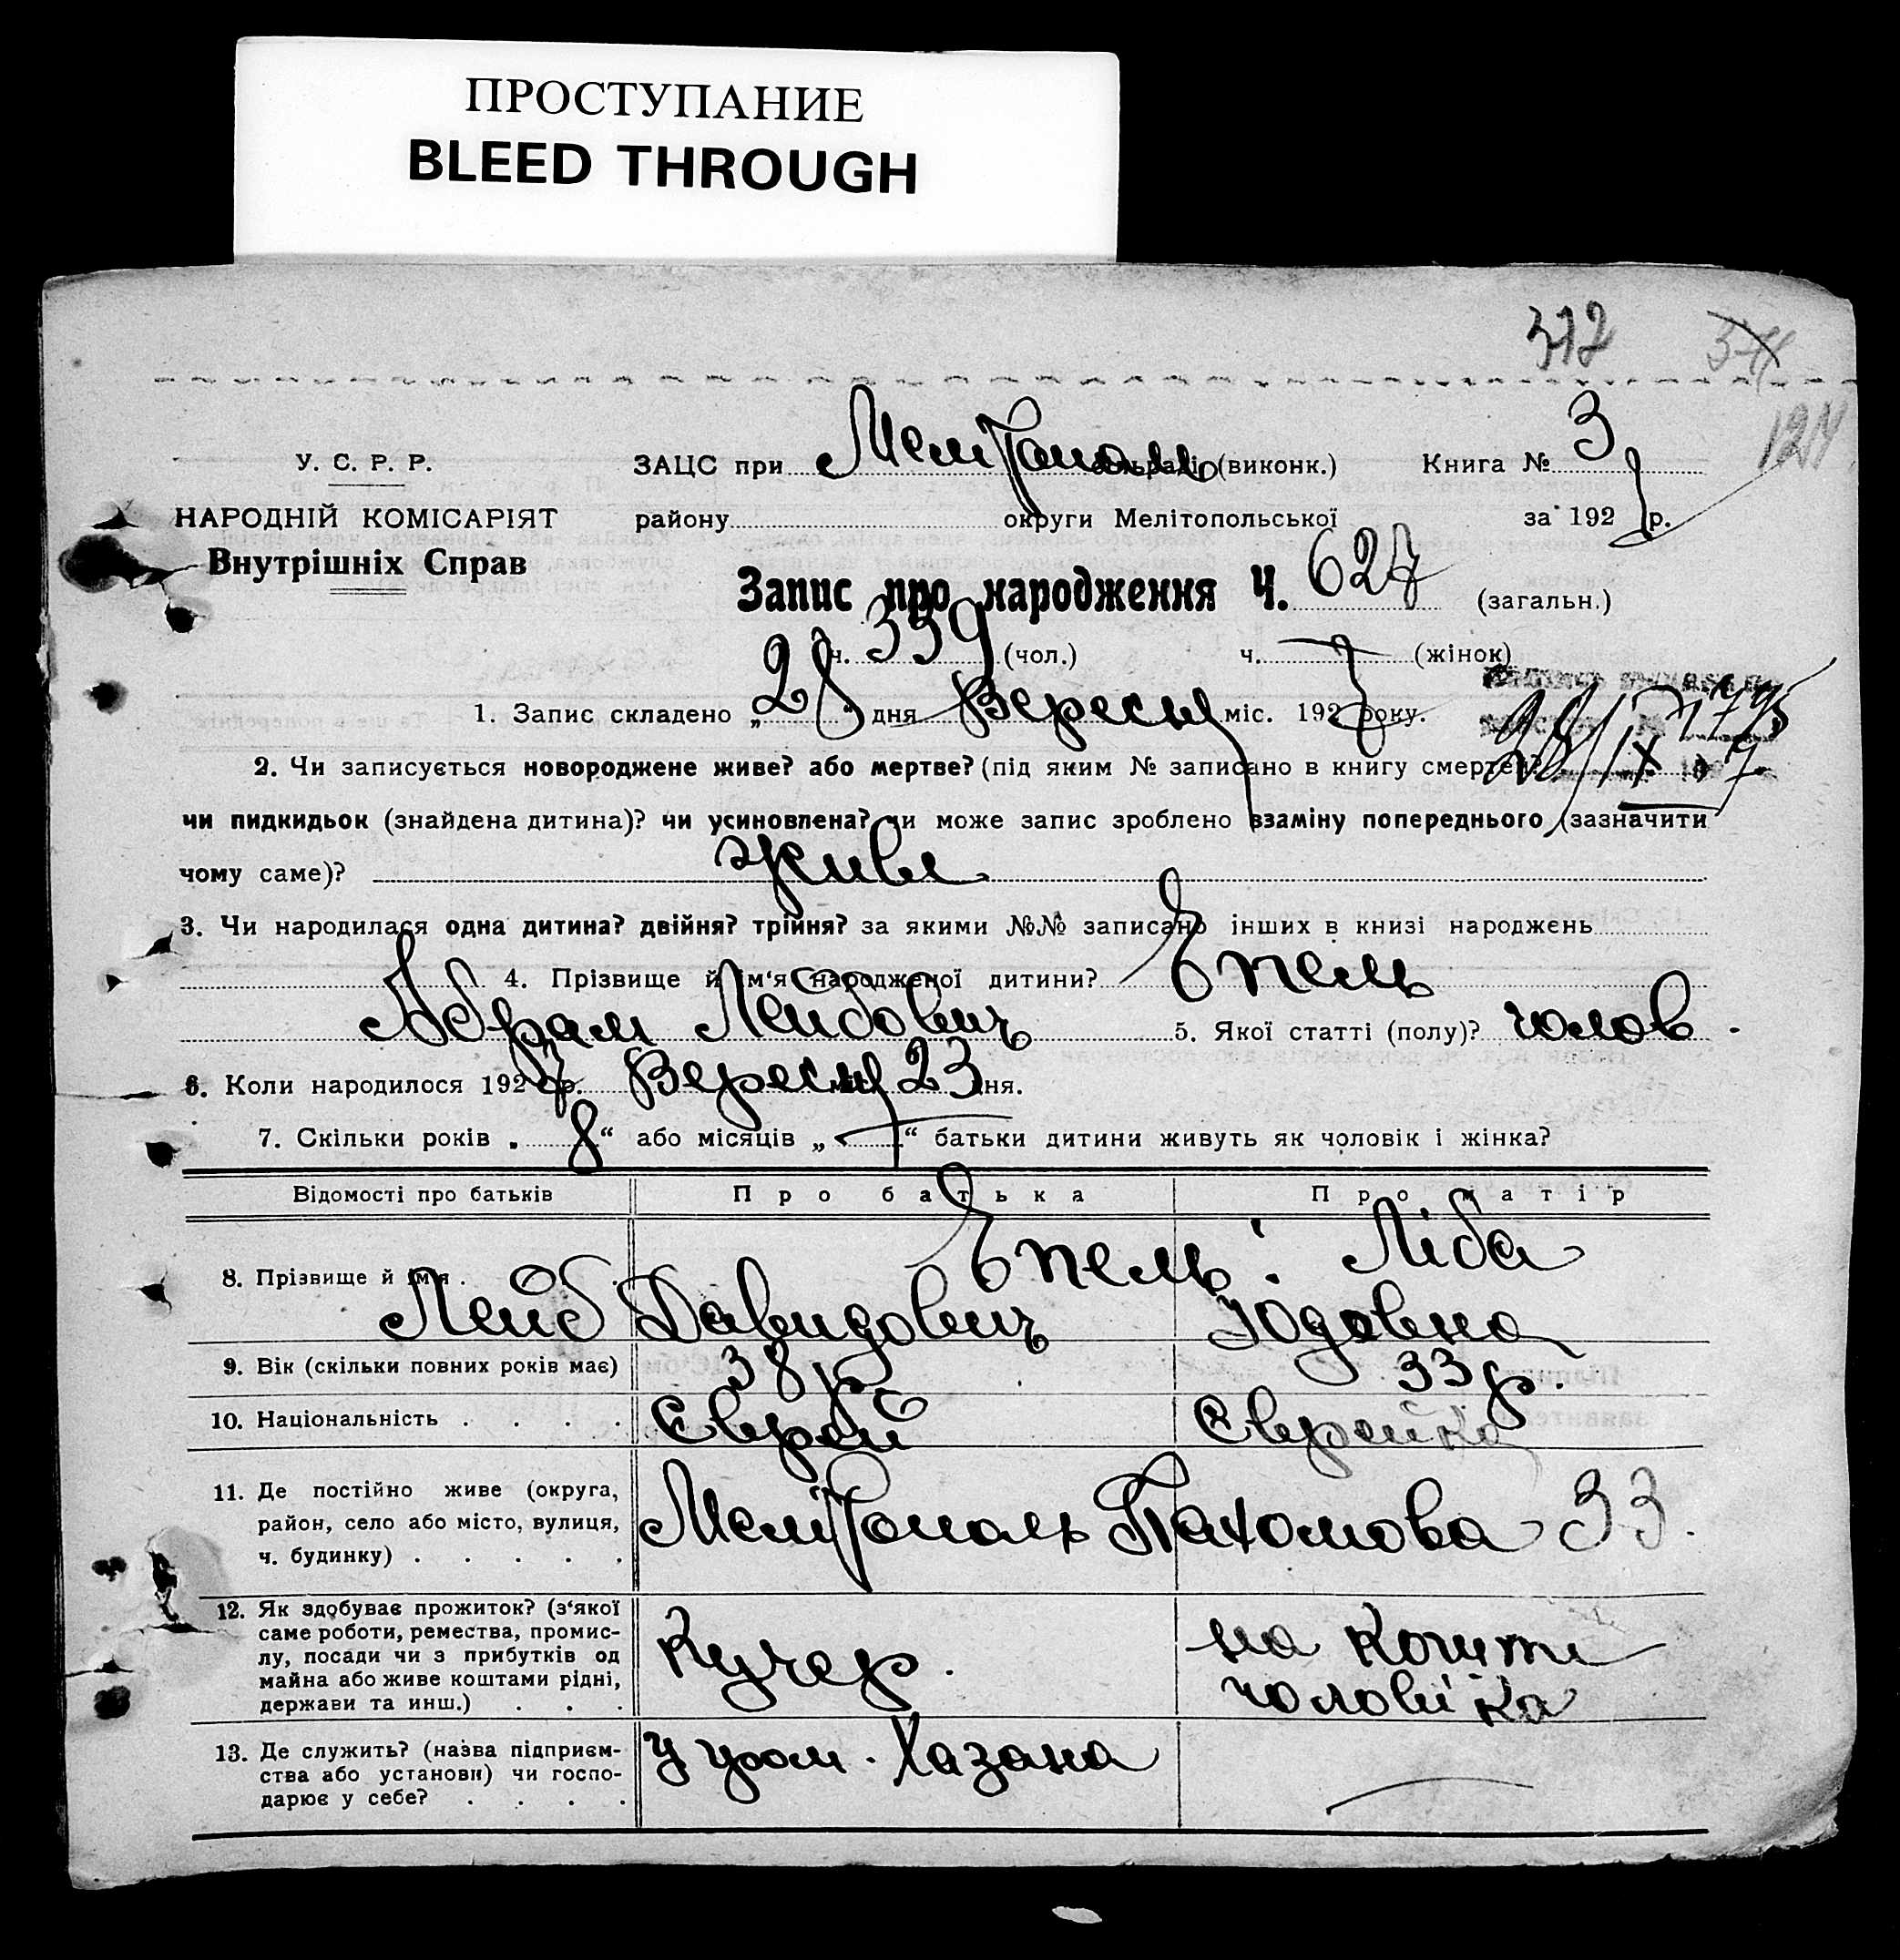 ПРОСТУПАНИЕ
BLEED THROUGH
312
У. С. Р. Р. ЗАЦС при Мелітополь (виконк.) Книга № 3
НАРОДНІЙ КОМІСАРІЯТ району округи Мелітопольської за 1927 р.
Внутрішніх Справ
Запис про народження Ч. 627 (загальн.)
ч. 339 (чол.) ч. (жінок)
1. Запис складено „28“ дня Вересня міс. 1927 року.
28/IX 7
2. Чи записується новороджене живе? або мертве? (під яким № записано в книгу смертей?
чи пидкидьок (знайдена дитина)? чи усиновлена? чи може запис зроблено взаміну попереднього (зазначити
чому саме)? живе
3. Чи народилася одна дитина? двійня? трійня? за якими №№ записано інших в книзі народжень
4. Прізвище й ім‘я народженої дитини? Епель
Абрам Лейбович 5. Якої статті (полу)? чолов.
6. Коли народилося 1927 р. Вересня 23 дня.
7. Скільки років „8“ або місяців „—“ батьки дитини живуть як чоловік і жінка?
Відомості про батьків Про батька Про матір
8. Прізвище й ім‘я . Епель: Ліба
Лейб Давидович Юдовна
9. Вік (скільки повних років має) 38 р. 33 р.
10. Національність . . . . Єврей Єврейка
11. Де постійно живе (округа,
район, село або місто, вулиця,
ч. будинку) . . . . . Мелітополь Пахомова 33.
12. Як здобуває прожиток? (з‘якої
саме роботи, ремества, промис-
лу, посади чи з прибутків од
майна або живе коштами рідні,
держави та инш.) . . . Кучер. на кошти
чоловіка
13. Де служить? (назва підприєм-
ства або установи) чи госпо-
дарює у себе? . . . . У гром. Хазана